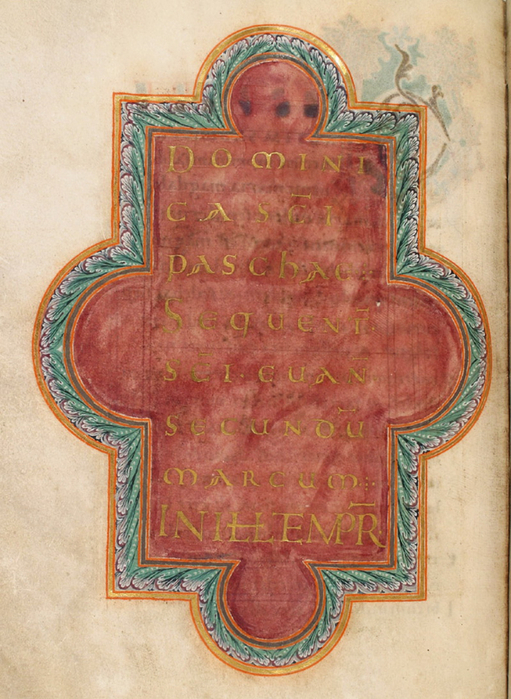 DOMINI
CA SC̄I
PASCHAE
SEQUENT̄
SC̄I·EUAN̄
SECUNDŪ
MARCUM:
IN ILL̵ TEMPR̄